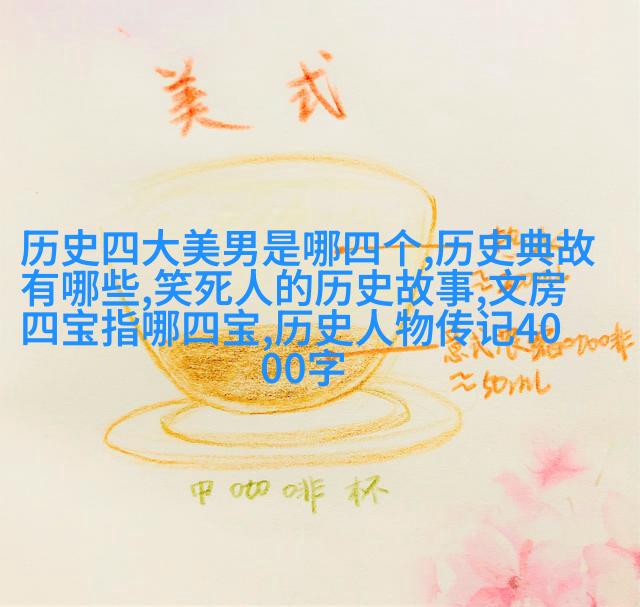 美式
历史四大美男是哪四个,历史典故
有哪些,笑死人的历史故事,文房
四宝指哪四宝,历史人物传记40
00字
≈50mL
中咖啡杯